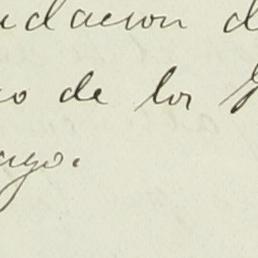 undacion d
o de los
ago.